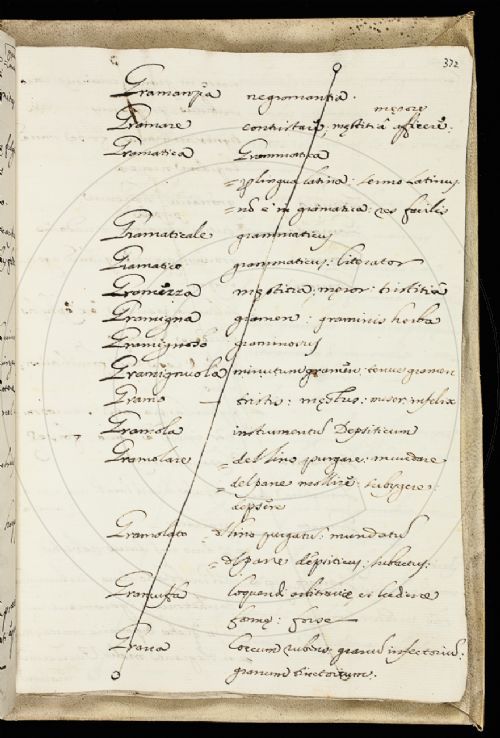 372
Gramanzia negromantia.
Gramare contristare, męstitiâ aficere: męrore
Gramatica Grammatica
= p lingua latina: sermo latinus
= nõ è in gramatica res facilis
Gramaticale grammaticus
Gramatico grammaticus: literator
Gramezza męstitia: męror: tristitia
Gramigna gramen: graminis herba
Gramignoso graminosus
Gramignuola minutum gramen: tenue gramen
Gramo tristis: męstus: miser infelix
Gramola instrumentũ Depsiticum
Gramolare = del lino purgare: mundare
= del pane mollire: subigere:
depsere
Gramolato = d lino purgatus: mundatus
= del pane depsiticus: subactus:
Gramuffa loquendi
forse
Grana Coccum rubens: granũ infectoriũ:
granum tinctorium: